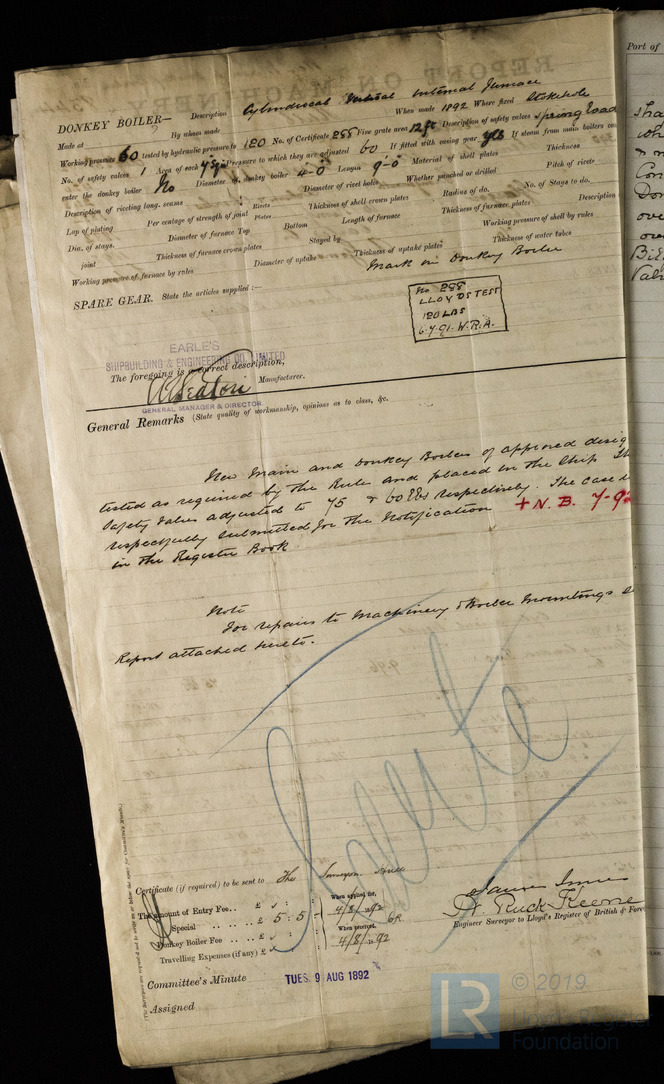 DONKEY BOILER— Description Cylindrical Vertical Internal Furnace
Made at By whom made When made 1892 Where fixed Stokehole
Working pressure 60 tested by hydraulic pressure to 120 No. of Certificate 288 Fire grate area 12 ft Description of safety valves Spring Load
No. of safety valves 1 Area of each Pressure to which they are adjusted 60 If fitted with easing gear yes If steam from main boilers can
enter the donkey boiler No Diameter of donkey boiler 4-0 Length 9-0 Material of shell plates Thickness
Description of riveting long. seams Diameter of rivet holes Whether punched or drilled Pitch of rivets
Lap of plating Per centage of strength of joint Rivets Plates Thickness of shell crown plates Radius of do. No. of Stays to do.
Dia. of stays. Diameter of furnace Top Bottom Length of furnace Thickness of furnace plates Description of
joint Thickness of furnace crown plates Stayed by Working pressure of shell by rules
Working pressure of furnace by rules Diameter of uptake Thickness of uptake plates Thickness of water tubes
Mark on Donkey Boiler
SPARE GEAR. State the articles supplied:—
No 288
LLOYDS TEST
120 LBS
6.7.91. W.R.A.
EARLE'S
SHIPBUILDING & ENGINEERING CO. LIMITED
The foregoing is a correct description,
A Seaton Manufacturer.
GENERAL MANAGER & DIRECTOR.
General Remarks (State quality of workmanship, opinions as to class, &c.
New Main and Donkey Boilers of approved desig
tested as required by the Rules and placed in the Ship The
Safety Valves adjusted to 75 & 60 lbs respectively. The case is
respectfully submitted for the Notification + N.B. 7-92
in the Register Book
Note
For repairs to Machinery & Boiler Mountings see
Report attached hereto.
Certificate (if required) to be sent to The Surveyor Hull
The amount of Entry Fee.. £ : : When applied for,
Special £ 5 : 5 : - 4/8/1892
Donkey Boiler Fee £ : : When received,
Travelling Expenses (if any) £ : : 4/8/1892
James Innes
W. Ruck Keene
Engineer Surveyor to Lloyd's Register of British & Fore
Committee's Minute TUES. 9 AUG 1892
Assigned
Port of
LR © 2019
Lloyd's Register
Foundation